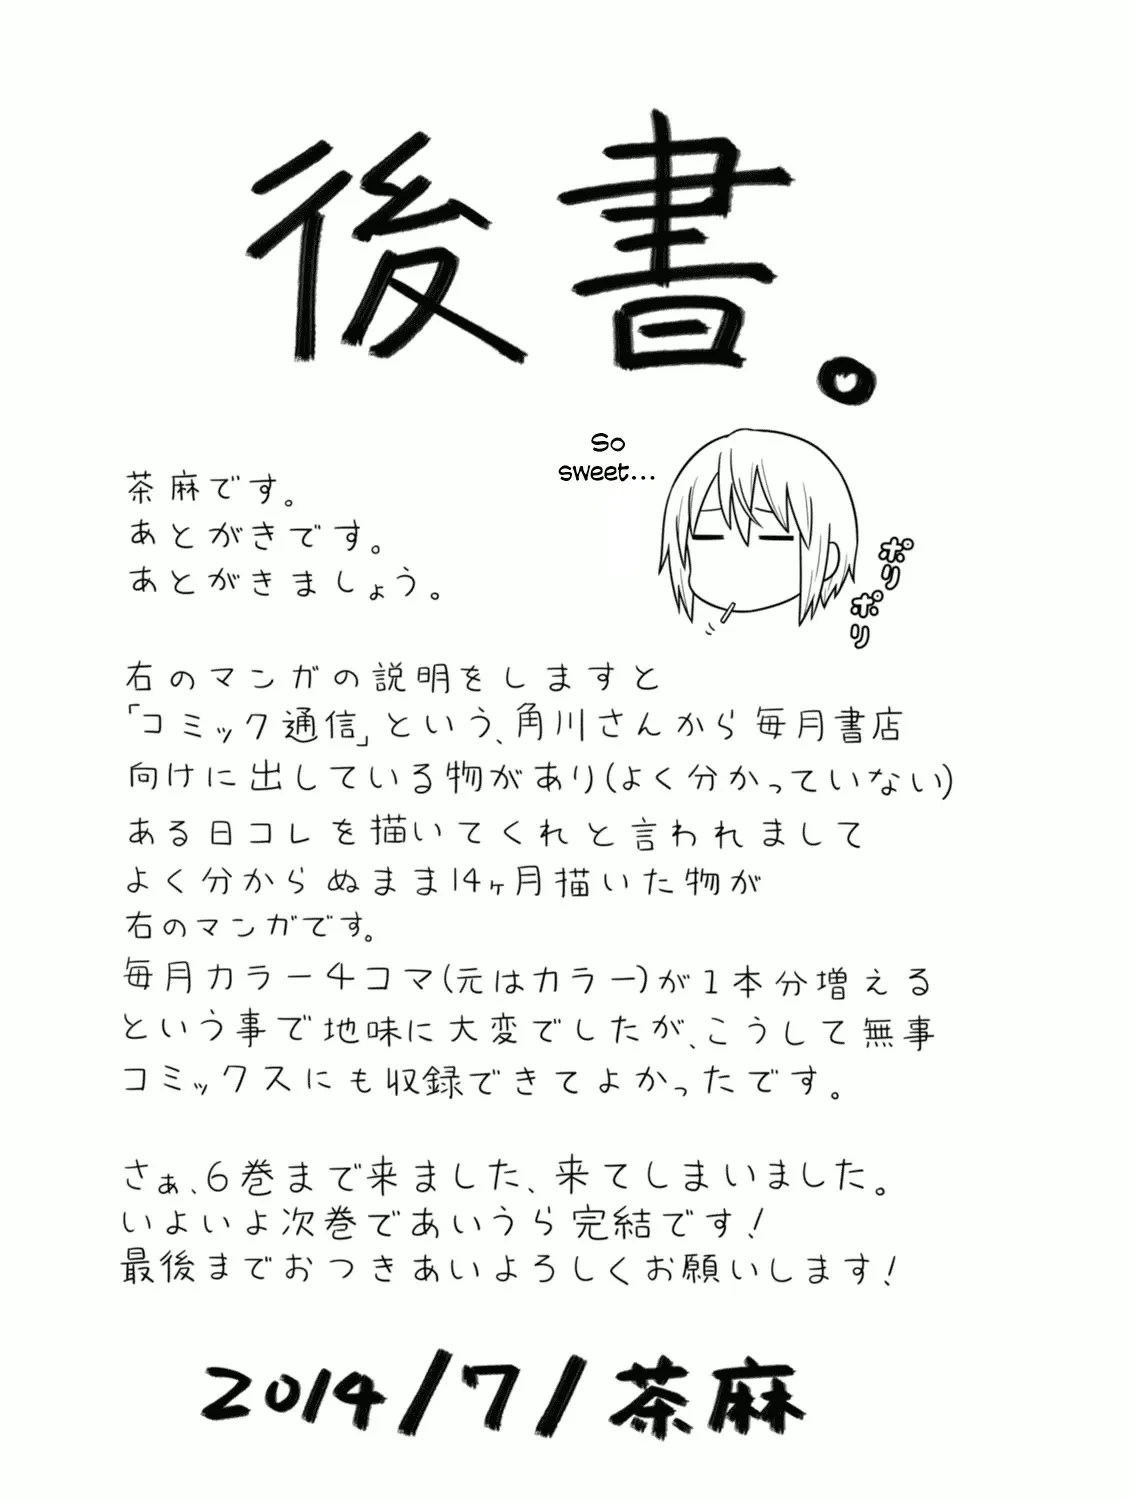 後書。
So
sweet...
ポリ
ポリ
茶麻です。
あとがきです。
あとがきましょう。
右のマンガの説明をしますと
「コミック通信」という、角川さんから毎月書店
向けに出している物があり(よく分かっていない)
ある日コレを描いてくれと言われまして
よく分からぬまま14ヶ月描いた物が
右のマンガです。
毎月カラー4コマ(元はカラー)が1本分増える
という事で地味に大変でしたが、こうして無事
コミックスにも収録できてよかったです。
さぁ、6巻まで来ました、来てしまいました。
いよいよ次巻であいうら完結です!
最後までおつきあいよろしくお願いします!
2014/7/茶麻